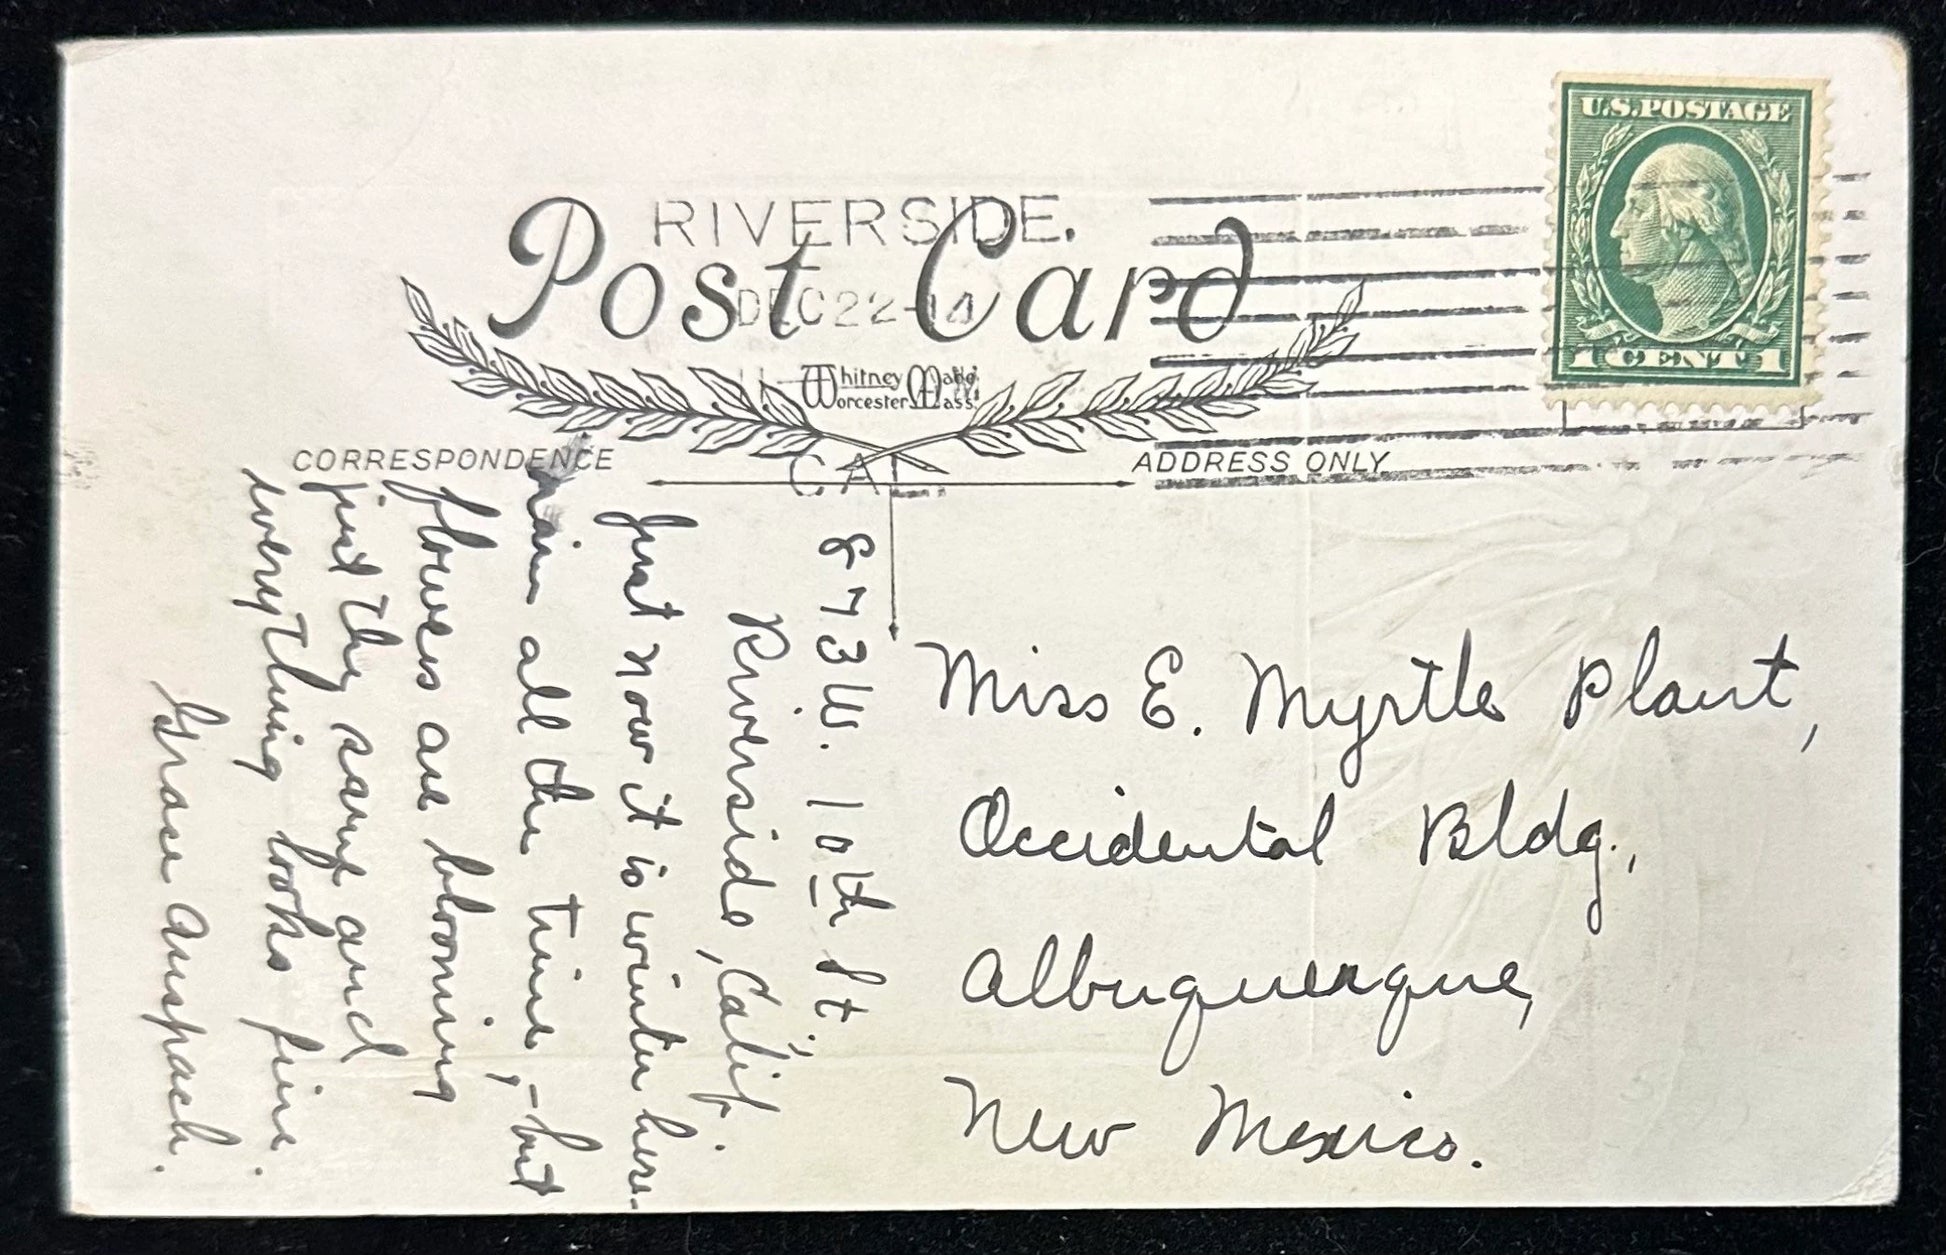 U.S.POSTAGE
1 CENT 1
RIVERSIDE.
DEC 22-14
CAL.
Post Card
Whitney Made
Worcester Mass.
CORRESPONDENCE
ADDRESS ONLY
873 W. 10th St.,
Riverside, Calif.
Just now it is winter here-
rain all the time, - but
flowers are blooming
just the same and
everything looks fine.
Grace Auspach.
Miss E. Myrtle Plant,
Occidental Bldg.,
Albuquerque,
New Mexico.